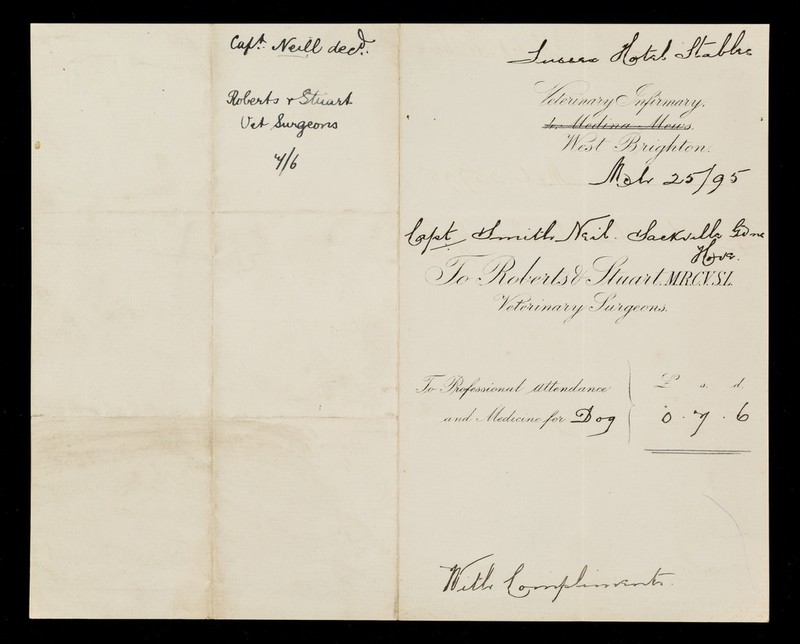 Capt. Neill decd.
Roberts & Stuart
Vet Surgeons
7/6
Sussex Hotel Stables
Veterinary Infirmary,
4, Medina Mews,
West Brighton.
Mch 25/95
Capt Smith Neil. Sackville Gdns
Hove.
To Roberts & Stuart. M.R.C.V.S.L.
Veterinary Surgeons.
To Professional Attendance
£ s. d.
and Medicine for Dog
0 . 7 . 6
With Compliments